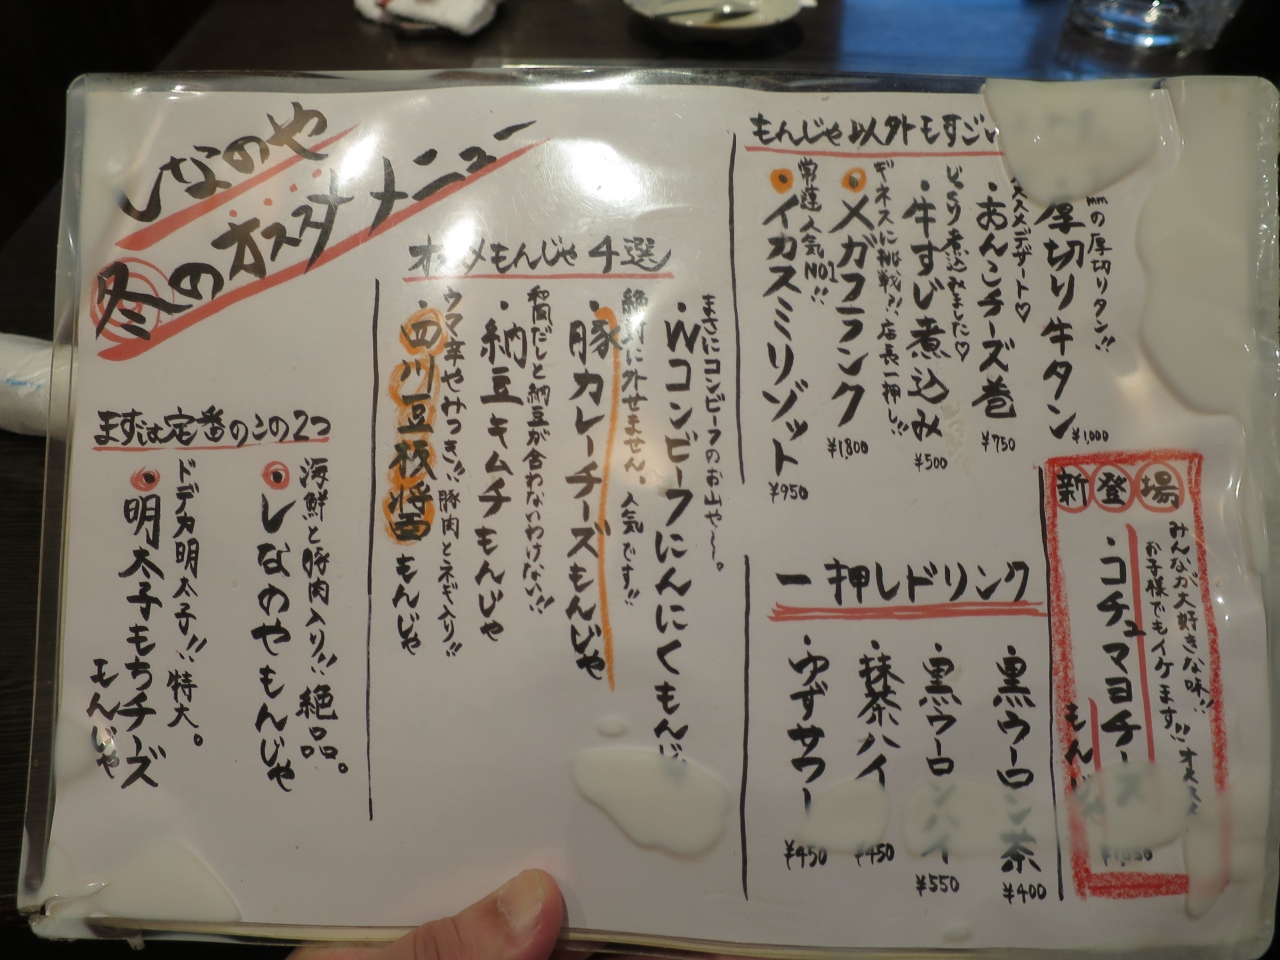 しなのや
冬のオススメメニュー
まずは定番のこの2つ
海鮮と豚肉入り!!絶品。
・しなのやもんじゃ
ドデカ明太子!!特大。
・明太子もちチーズ
もんじゃ
オススメもんじゃ4選
まさにコンビーフのお山や〜。
・Wコンビーフにんにくもんじ
絶対に外せません。人気です!!
・豚カレーチーズもんじゃ
和風だしと納豆が合わないわけない!!
・納豆キムチもんじゃ
ウマ辛やみつき!!豚肉とネギ入り!!
・四川豆板醤もんじゃ
もんじゃ以外もすごい
mmの厚切りタン!!
厚切り牛タン
¥1,000
ススメデザート♡
・あんこチーズ巻
¥750
じっくり煮込みました♡
・牛すじ煮込み
¥500
ギネスに挑戦?!店長一押し!!
・メガフランク
¥1,800
常連人気NO1!!
・イカスミリゾット
¥950
新登場
みんなが大好きな味!!
お子様でもイケます!!オススメ
・コチュマヨチーズ
もんじゃ
一押しドリンク
・黒ウーロン茶
¥400
・黒ウーロンハイ
¥550
・抹茶ハイ
¥450
・ゆずサワー
¥450